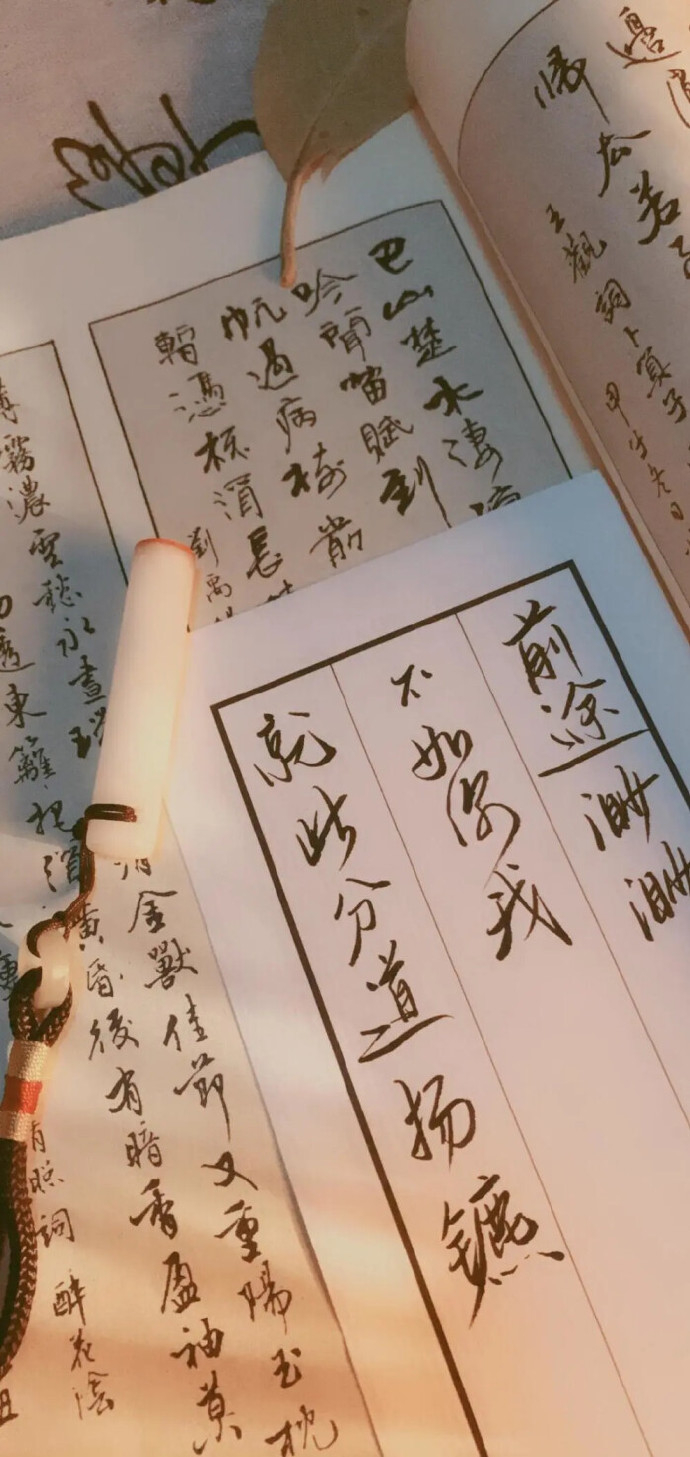 邊
歸去若
王觀詞卜算子
巴山楚水淒
吟聞笛賦到
帆過病樹前
暫憑杯酒長
劉禹
前途渺渺
不如你我
就此分道扬镳
薄霧濃雲愁永晝瑞
消金獸佳節又重陽玉枕
透東籬把酒黃昏後有暗香盈袖莫
照詞 醉花陰